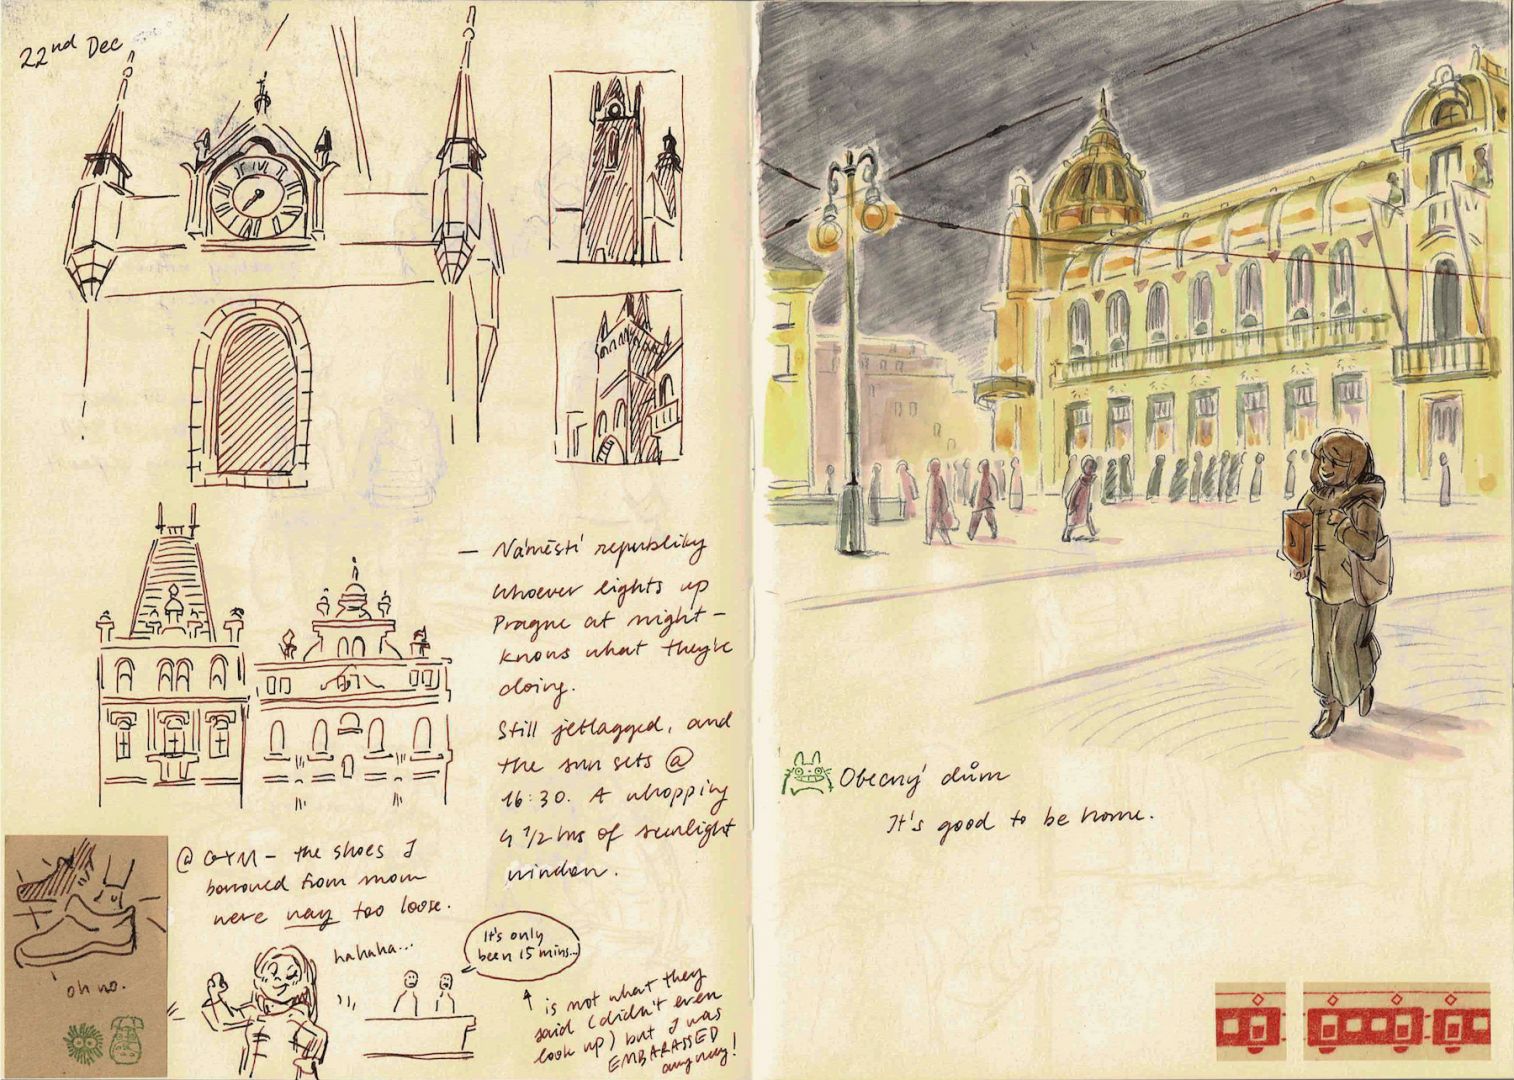 22nd Dec
— Náměstí republiky
Whoever lights up
Prague at night –
knows what they're
doing.
Still jetlagged, and
the sun sets @
16:30. A whopping
4 1/2 hrs of sunlight
window.
@ GYM – the shoes I
borrowed from mom
were way too loose.
oh no.
hahaha...
It's only
been 15 mins...
↑ is not what they
said (didn't even
look up) but I was
EMBARASSED
anyway!
Obecný dům
It's good to be home.